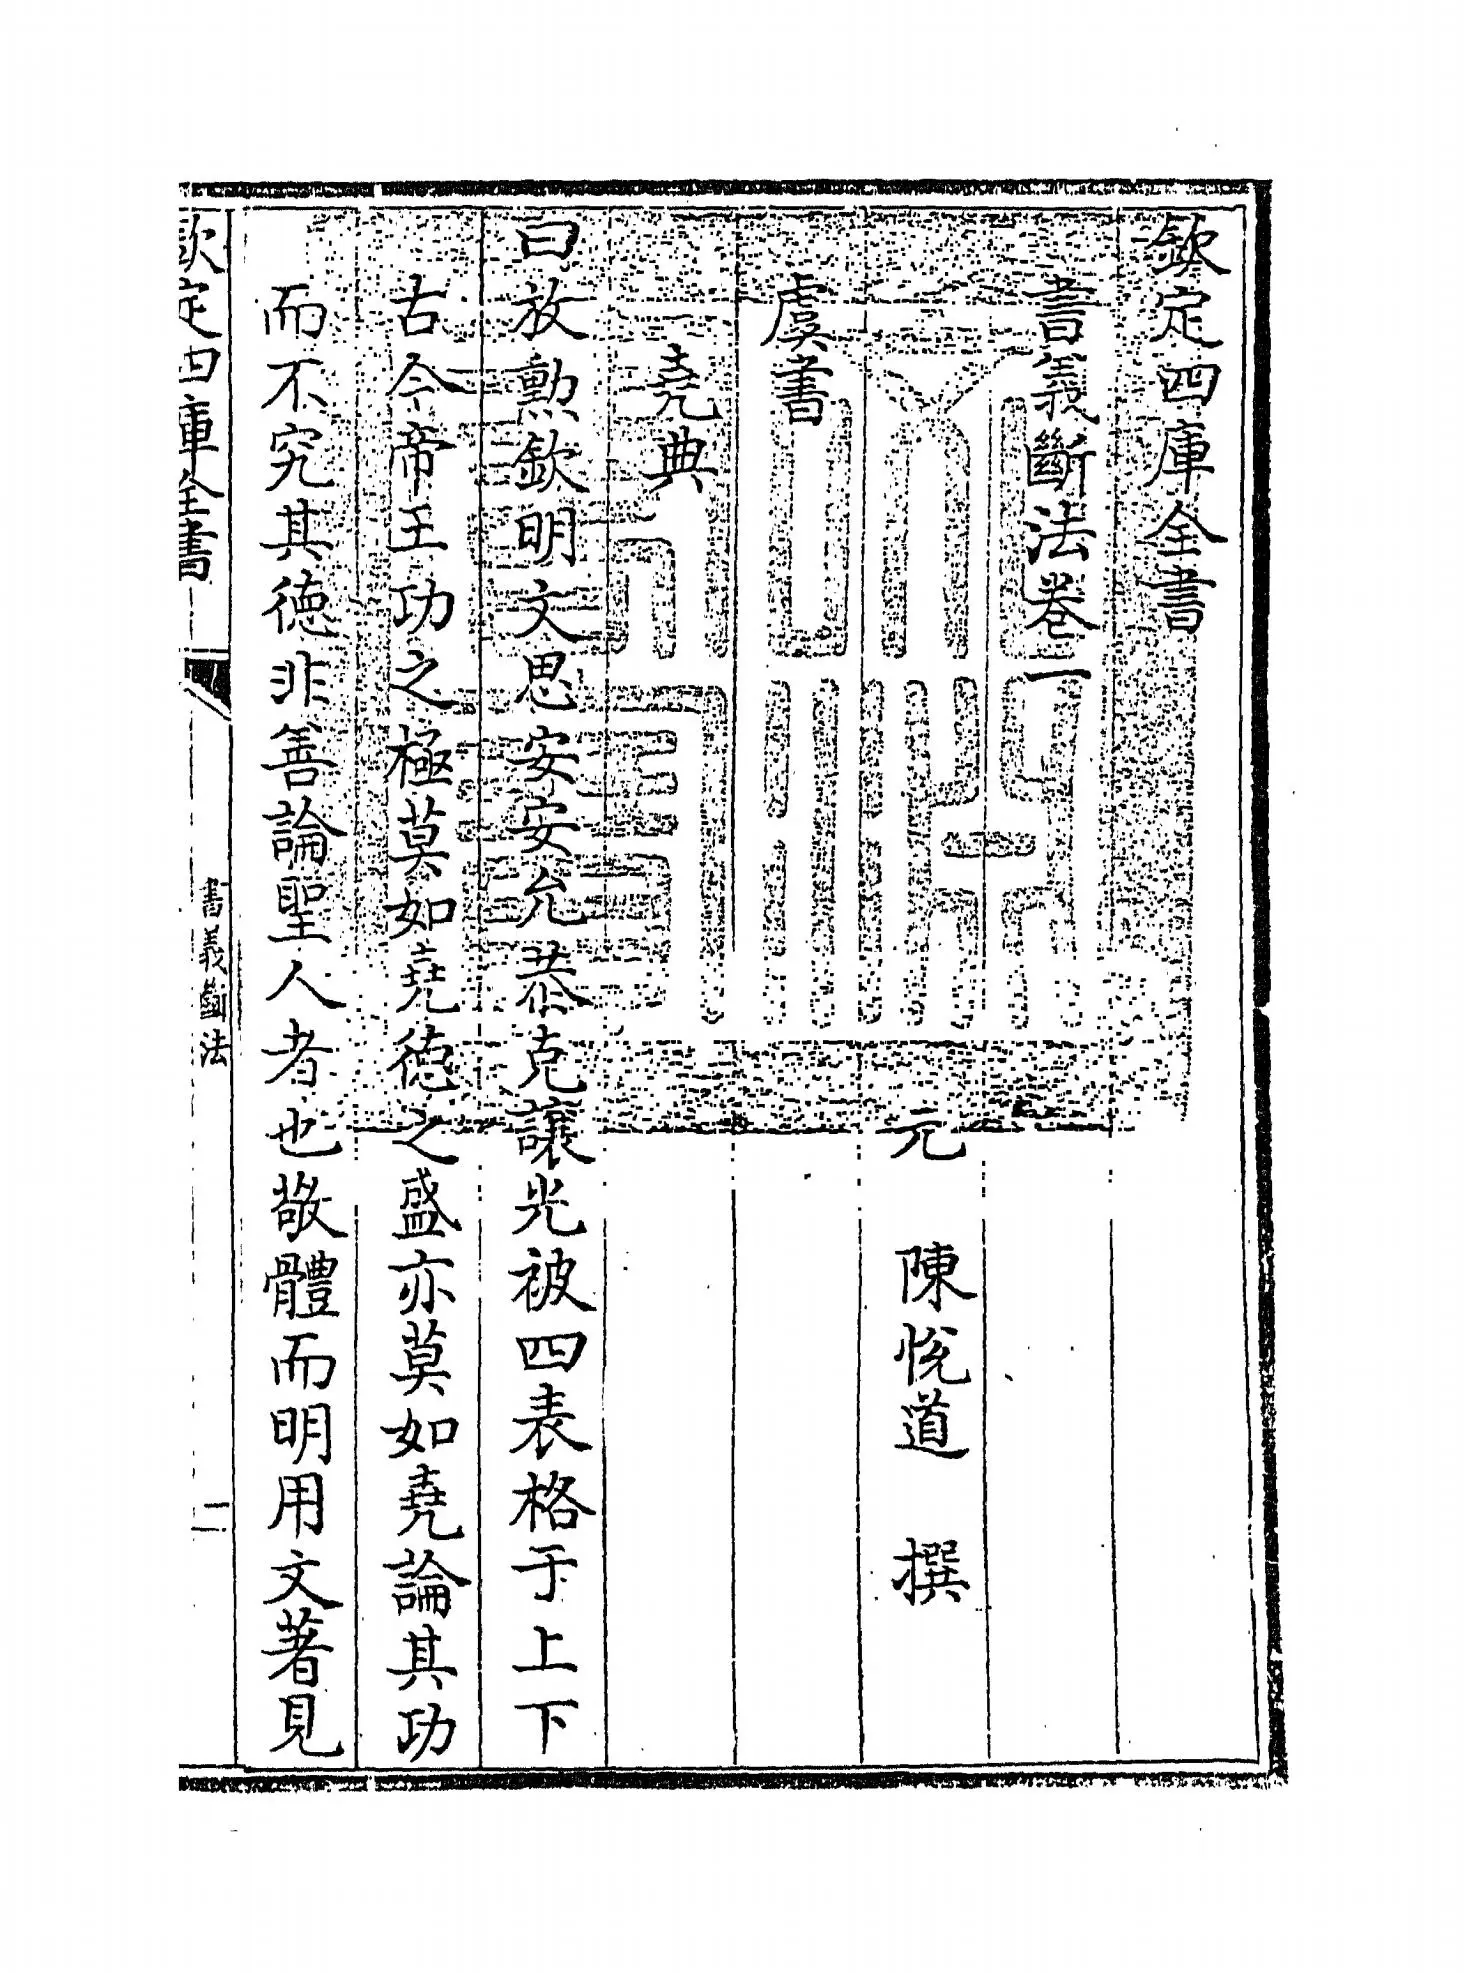 欽定四庫全書
書義斷法卷一
元 陳悅道 撰
虞書
堯典
曰放勲欽明文思安安允恭克讓光被四表格于上下
古今帝王功之極莫如堯德之盛亦莫如堯論其功
而不究其德非善論聖人者也敬體而明用文著見
欽定四庫全書
書義斷法
二